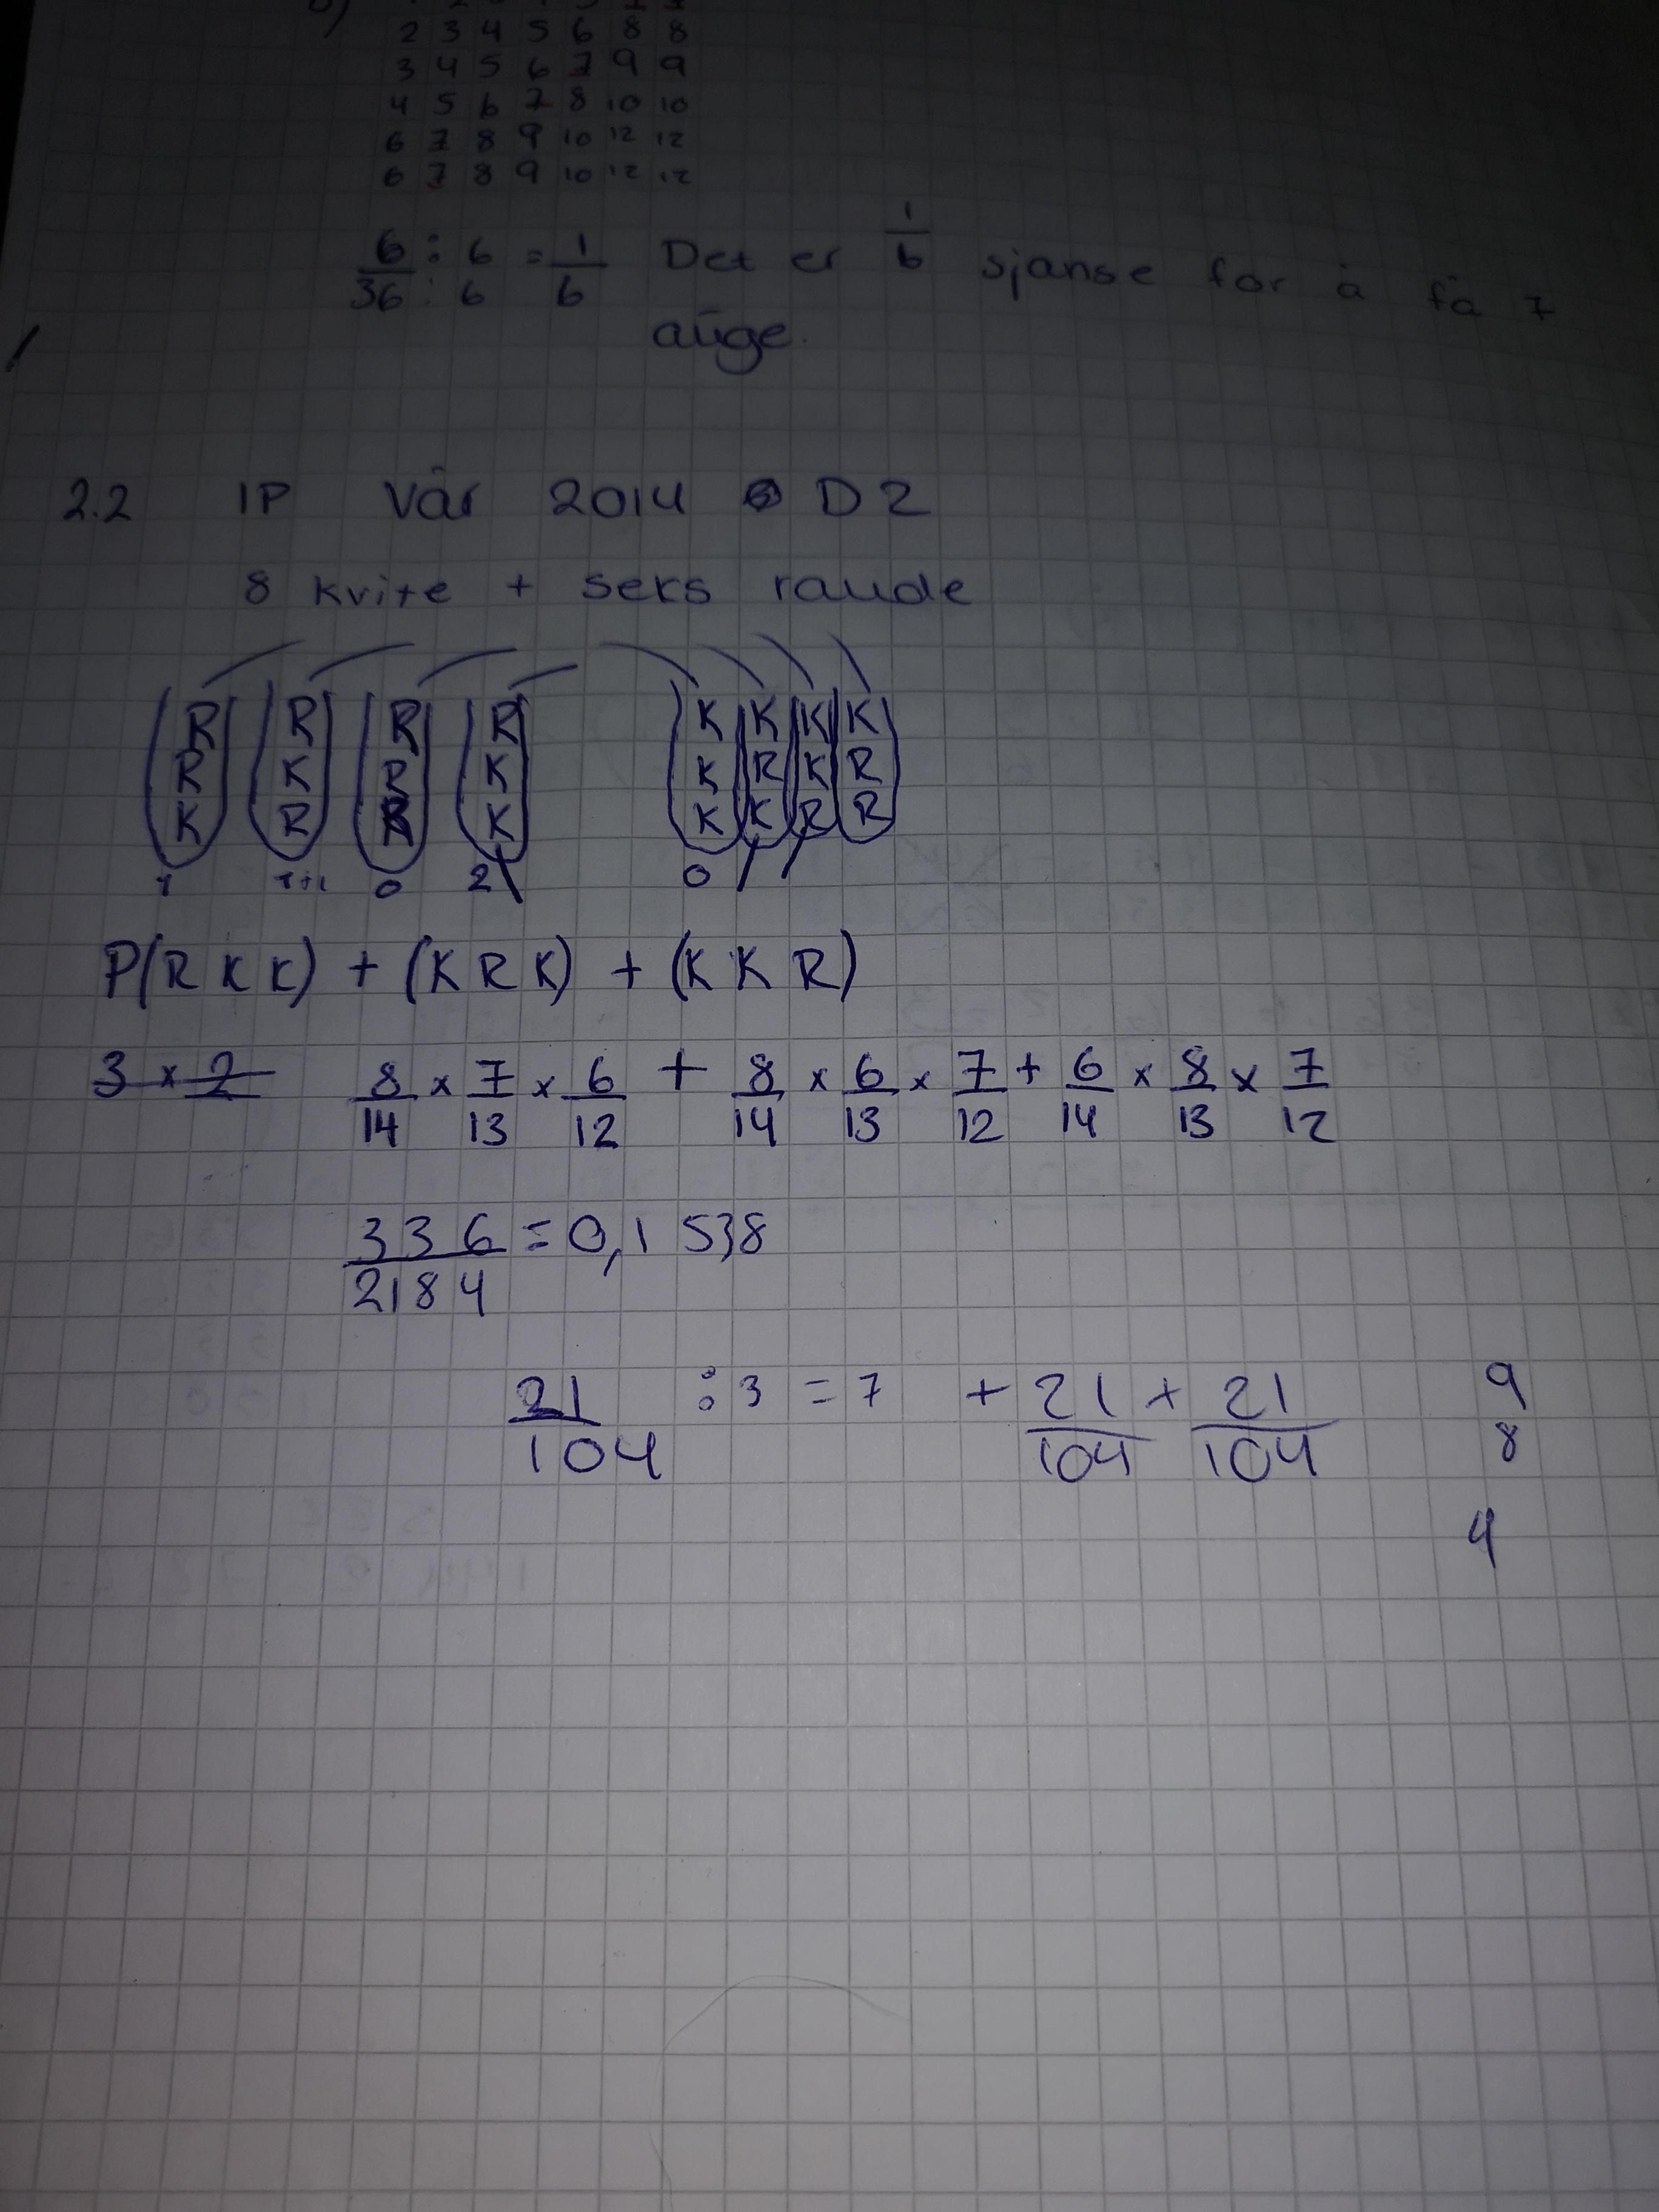 b)
2 3 4 5 6 8 8
3 4 5 6 7 9 9
4 5 6 7 8 10 10
6 7 8 9 10 12 12
6 7 8 9 10 12 12
6/36 : 6/6 = 1/6 Det er 1/6 sjanse for å få 7
auge.
2.2 1P Vår 2014 D2
8 kvite + seks raude
R R R R K K K K
R K R K K R K R
K R R K K K R R
1 1+1 0 2 0
P(R K K) + (K R K) + (K K R)
3 x 2 8/14 x 7/13 x 6/12 + 8/14 x 6/13 x 7/12 + 6/14 x 8/13 x 7/12
336/2184 = 0,1538
21/104 : 3 = 7 + 21/104 + 21/104 9
8
4